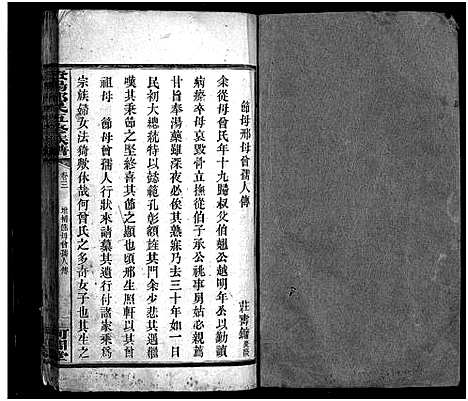 節母邢母曾孺人傳
莊霄
余從母曾氏年十九歸叔父伯翹公越明年丞以勤讀
病瘵卒母哀毀骨立撫從伯子承公祧事舅姑必親蔫
甘旨奉湯藥雖深夜必俟其熟寐乃去三十年如一日
民初大總統特以懿範孔彰額旌其門余少悲其遇繼
嘆其秉節之堅終喜其節之顯也頃邢生照軒以其曾
祖母節母曾孺人行狀來請纂其遺行付諸家乘
宗族婦女法猗歟休哉何曾氏之多奇女子也其生之
五修族譜
卷三
增補節母曾孺人傳
堂